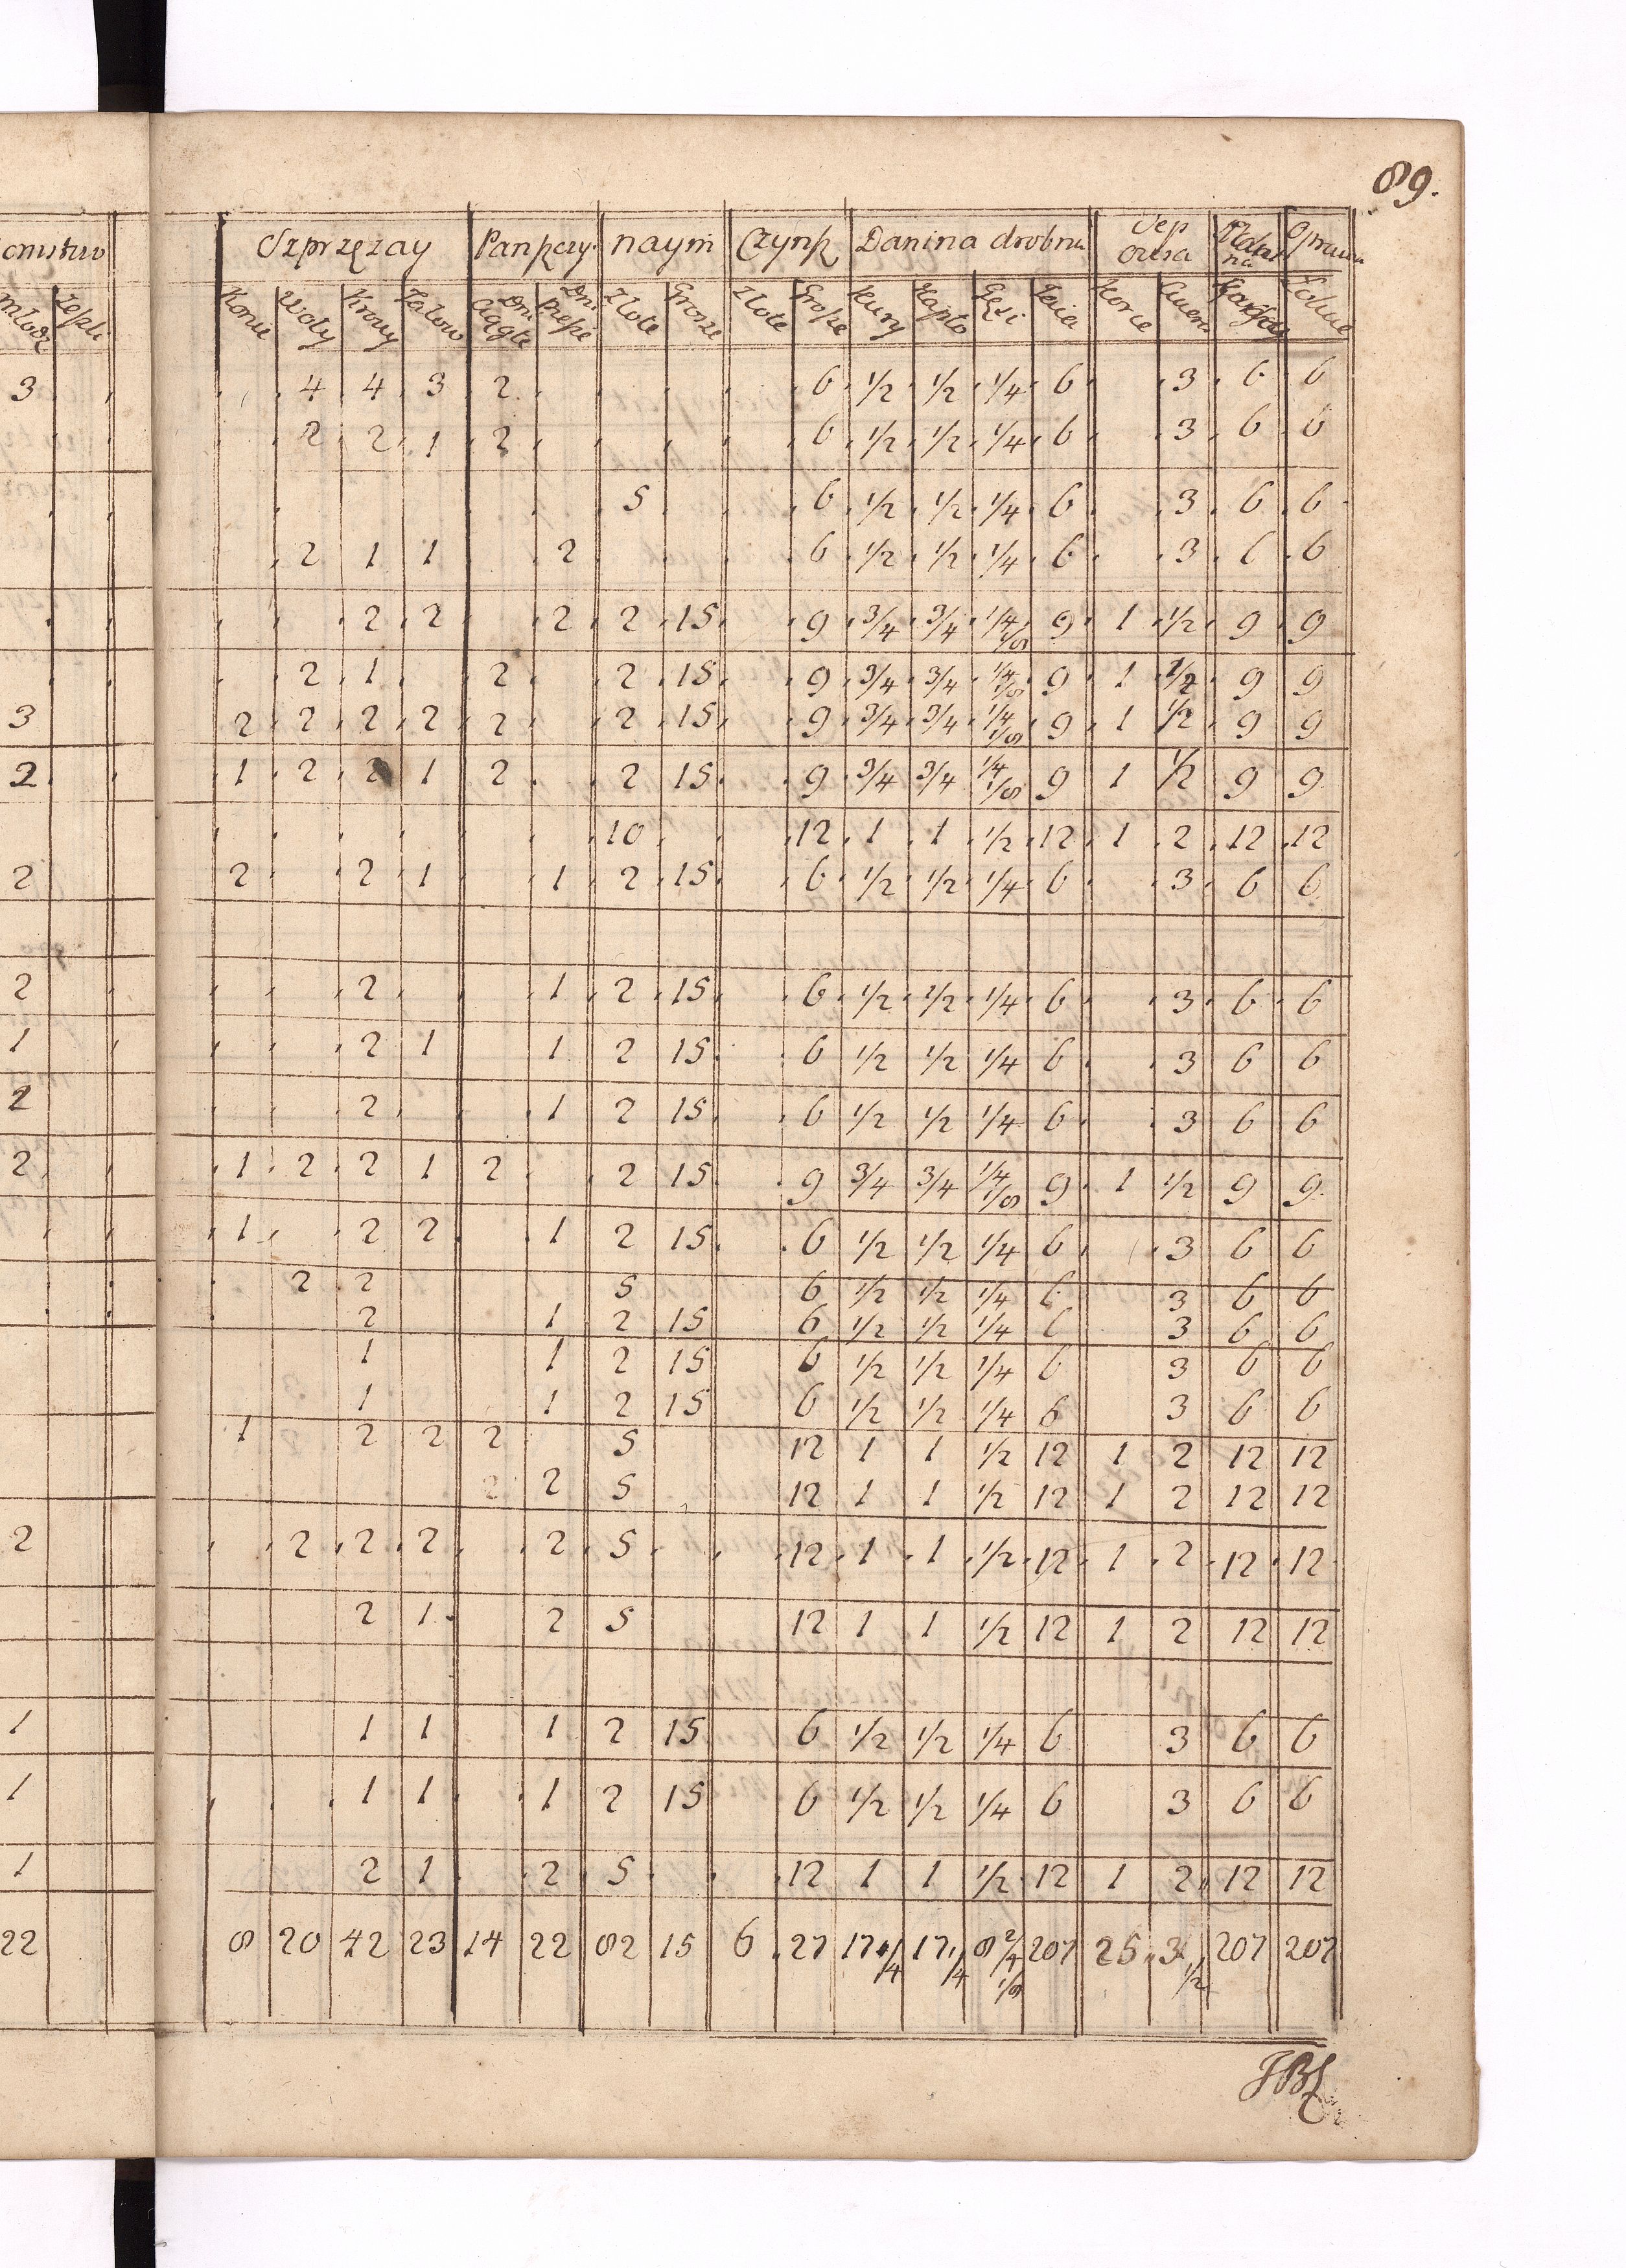 89.
Szprzęzay Panpczy naym Czynp Danina drobna Sep owsa
młodz Konie Woły Krowy Jałow Dni Ciągłe Dni piesze Złote Grosze Złote Grosze Kury Kapło Gęsi Jaia Korce
3 4 4 3 2 6 1/2 1/2 1/4 6 3 6 6
2 2 1 2 6 1/2 1/2 1/4 6 3 6 6
5 6 1/2 1/2 1/4 6 3 6 6
2 1 1 2 6 1/2 1/2 1/4 6 3 6 6
2 2 2 2 15 9 3/4 3/4 1/4 1/8 9 1 1/2 9 9
2 1 2 2 15 9 3/4 3/4 1/4 1/8 9 1 1/2 9 9
3 2 2 2 2 2 2 15 9 3/4 3/4 1/4 1/8 9 1 1/2 9 9
2 1 2 2 1 2 2 15 9 3/4 3/4 1/4 1/8 9 1 1/2 9 9
10 12 1 1 1/2 12 1 2 12 12
2 2 2 1 1 2 15 6 1/2 1/2 1/4 6 3 6 6
2 2 1 2 15 6 1/2 1/2 1/4 6 3 6 6
1 2 1 1 2 15 6 1/2 1/2 1/4 6 3 6 6
2 2 1 2 15 6 1/2 1/2 1/4 6 3 6 6
2 1 2 2 1 2 2 15 9 3/4 3/4 1/4 1/8 9 1 1/2 9 9
1 2 2 1 2 15 6 1/2 1/2 1/4 6 3 6 6
2 2 5 6 1/2 1/2 1/4 6 3 6 6
2 1 2 15 6 1/2 1/2 1/4 6 3 6 6
1 1 2 15 6 1/2 1/2 1/4 6 3 6 6
1 1 2 15 6 1/2 1/2 1/4 6 3 6 6
1 2 2 2 5 12 1 1 1/2 12 1 2 12 12
2 2 5 12 1 1 1/2 12 1 2 12 12
2 2 2 2 2 5 12 1 1 1/2 12 1 2 12 12
2 1 2 5 12 1 1 1/2 12 1 2 12 12
1 1 1 1 2 15 6 1/2 1/2 1/4 6 3 6 6
1 1 1 1 2 15 6 1/2 1/2 1/4 6 3 6 6
1 2 1 2 5 12 1 1 1/2 12 1 2 12 12
22 8 20 42 23 14 22 82 15 6 27 17 1/4 17 1/4 8 2/4 1/8 207 25 3 1/2 207 207